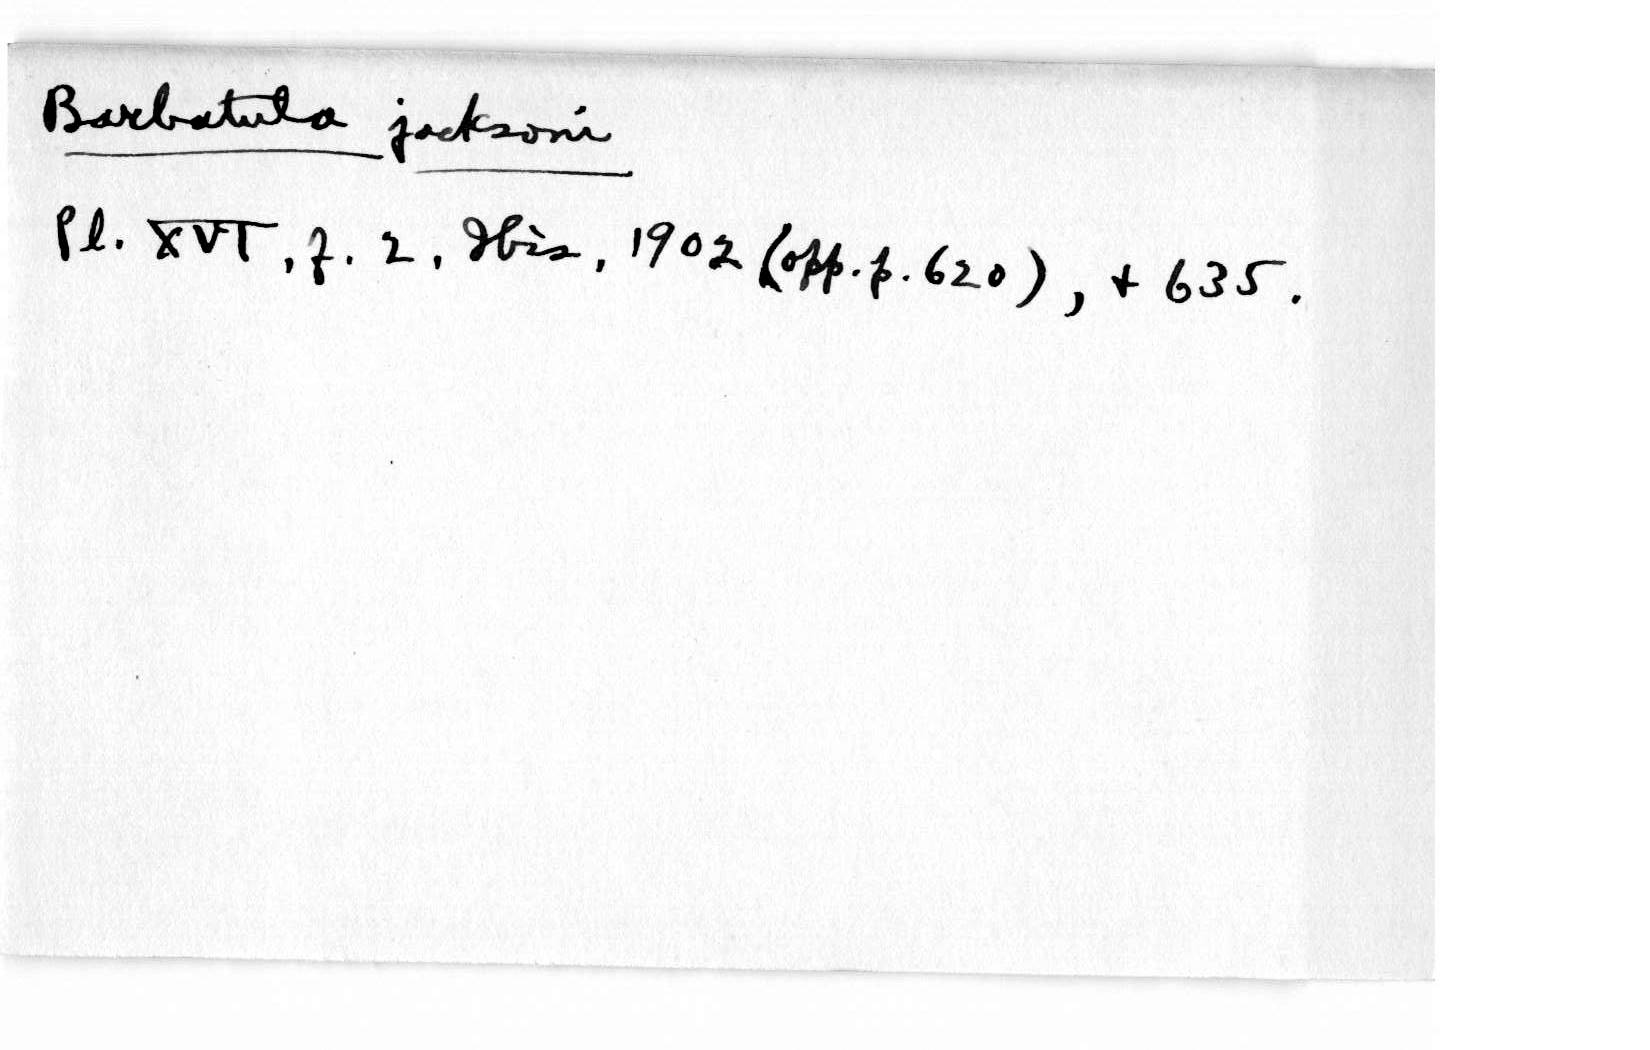 Barbatula jacksoni
Pl. XVI, f. 2, Ibis, 1902 (opp. p. 620), + 635.